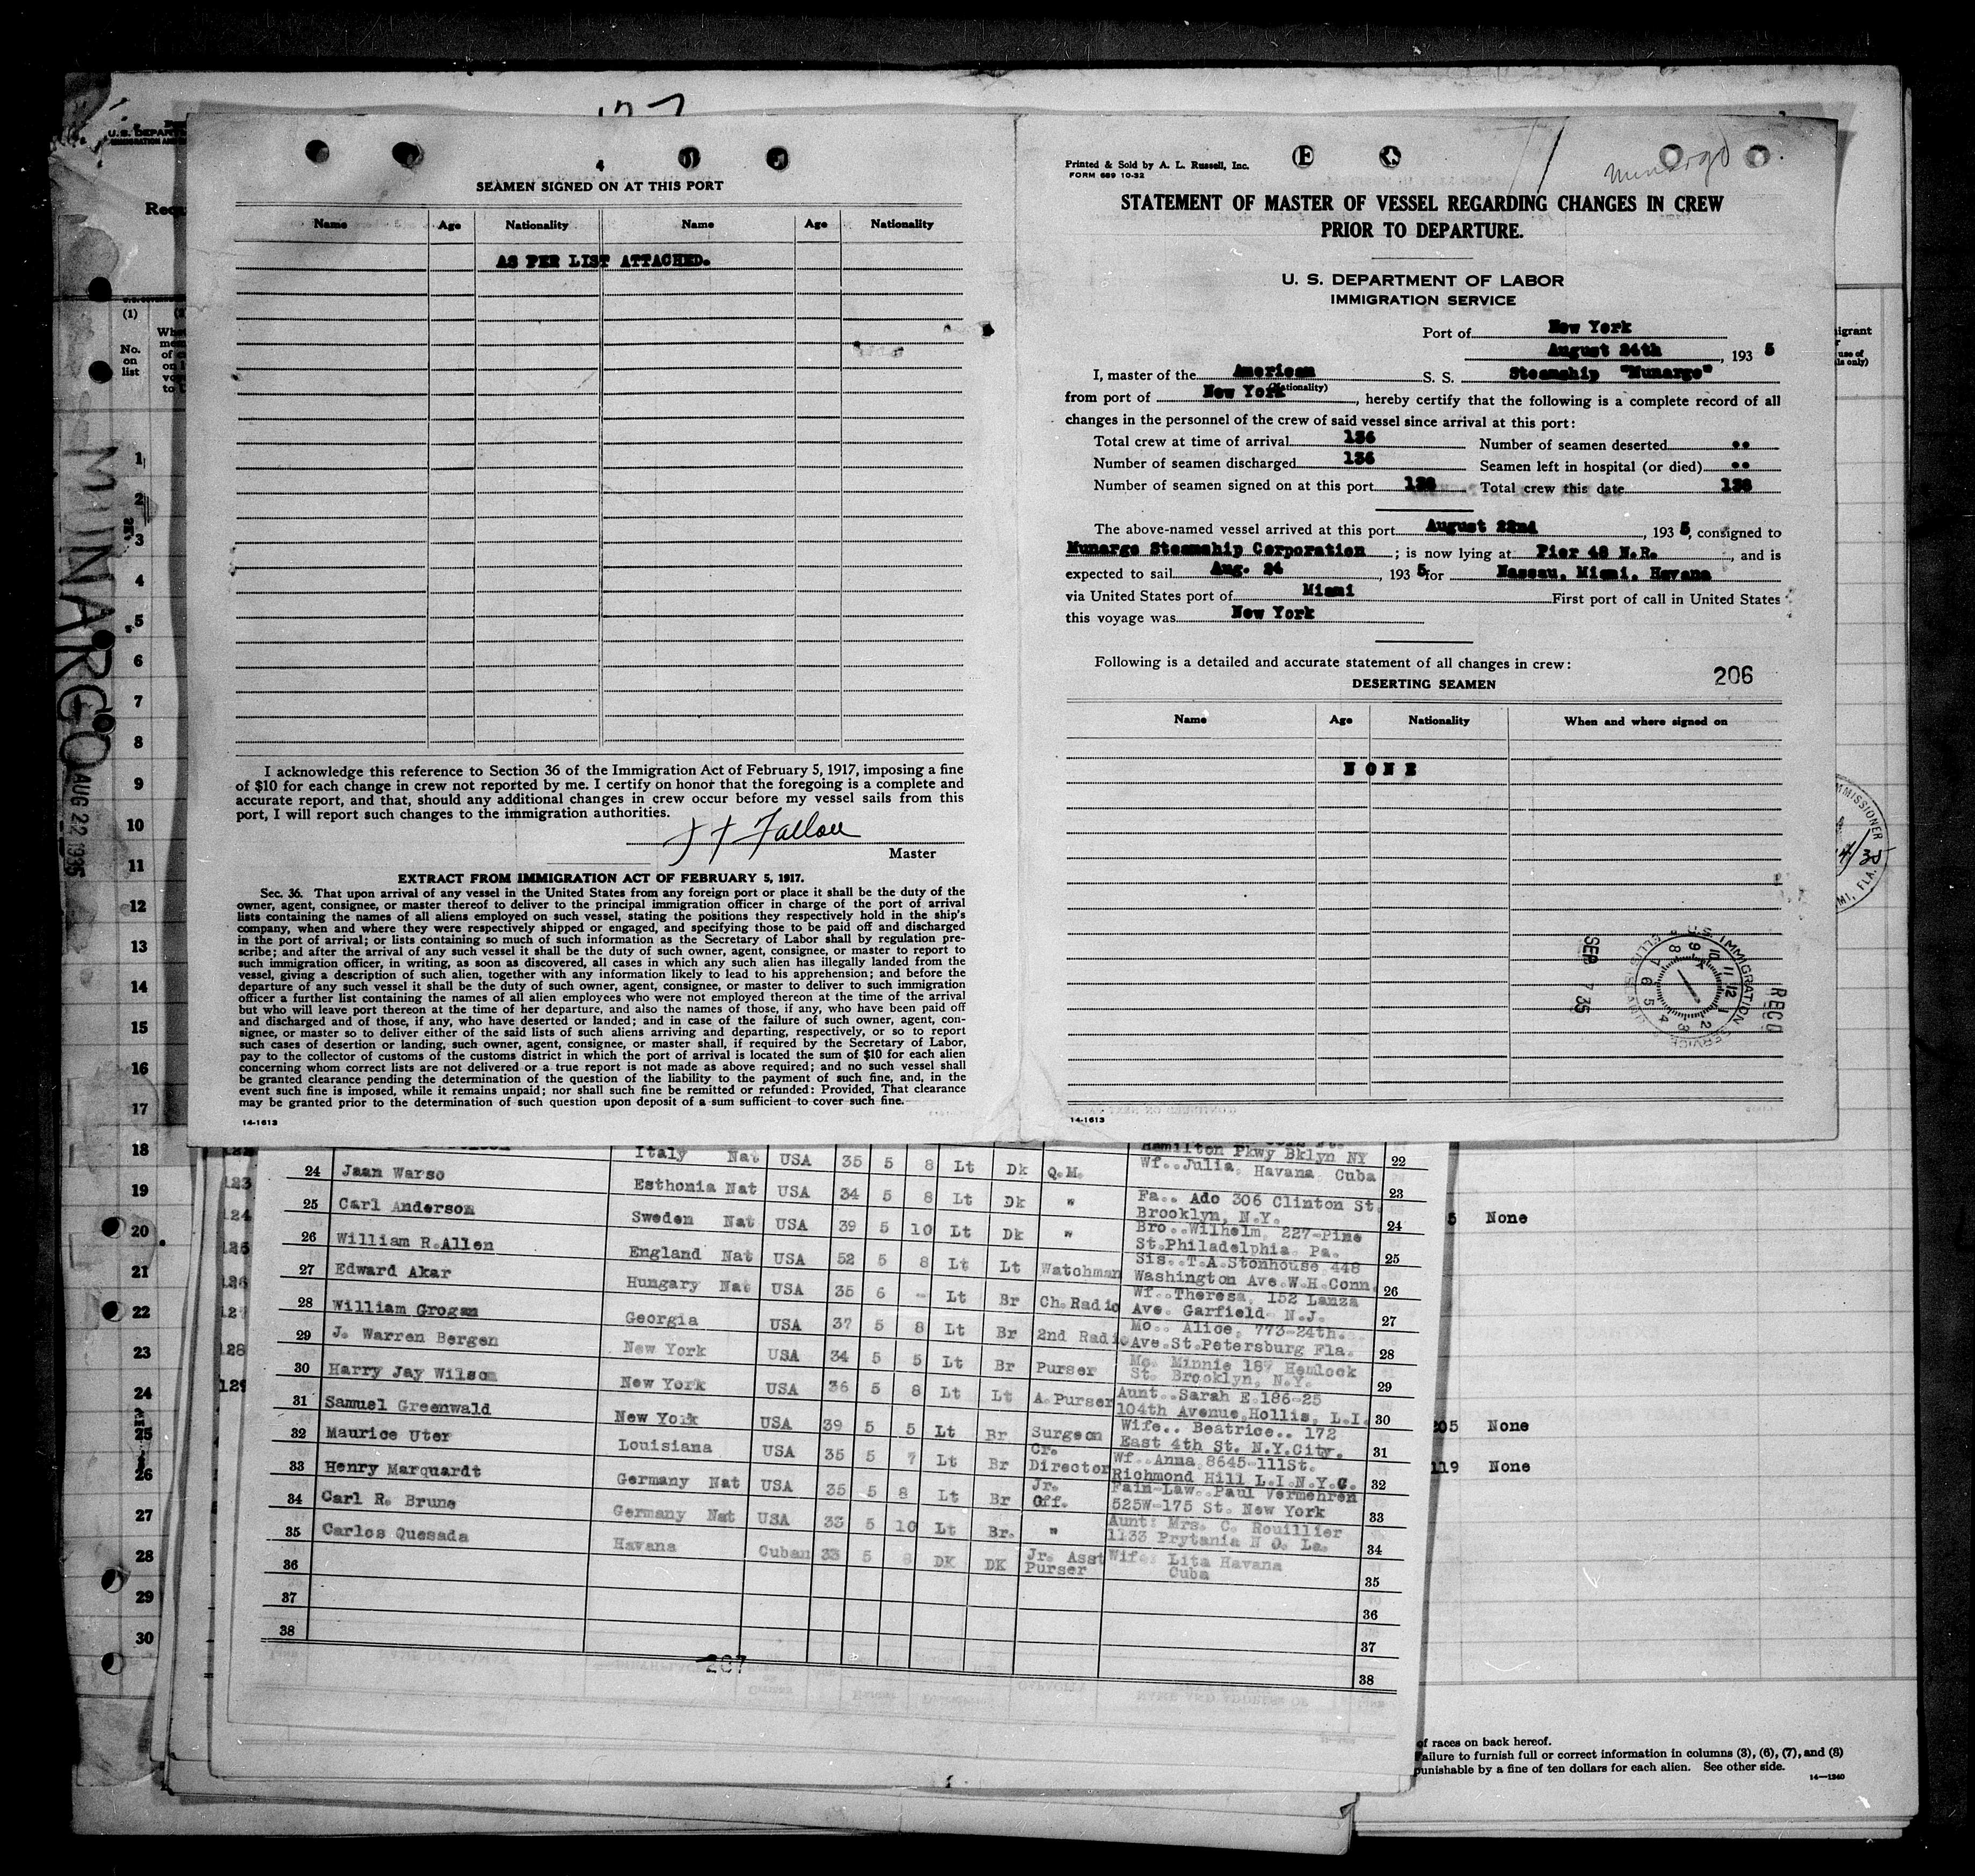 4
SEAMEN SIGNED ON AT THIS PORT
Name Age Nationality Name Age Nationality
AS PER LIST ATTACHED.
I acknowledge this reference to Section 36 of the Immigration Act of February 5, 1917, imposing a fine
of $10 for each change in crew not reported by me. I certify on honor that the foregoing is a complete and
accurate report, and that, should any additional changes in crew occur before my vessel sails from this
port, I will report such changes to the immigration authorities.
Fallon
Master
EXTRACT FROM IMMIGRATION ACT OF FEBRUARY 5, 1917.
Sec. 36. That upon arrival of any vessel in the United States from any foreign port or place it shall be the duty of the
owner, agent, consignee, or master thereof to deliver to the principal immigration officer in charge of the port of arrival
lists containing the names of all aliens employed on such vessel, stating the positions they respectively hold in the ship's
company, when and where they were respectively shipped or engaged, and specifying those to be paid off and discharged
in the port of arrival; or lists containing so much of such information as the Secretary of Labor shall by regulation pre-
scribe; and after the arrival of any such vessel it shall be the duty of such owner, agent, consignee, or master to report to
such immigration officer, in writing, as soon as discovered, all cases in which any such alien has illegally landed from the
vessel, giving a description of such alien, together with any information likely to lead to his apprehension; and before the
departure of any such vessel it shall be the duty of such owner, agent, consignee, or master to deliver to such immigration
officer a further list containing the names of all alien employees who were not employed thereon at the time of the arrival
but who will leave port thereon at the time of her departure, and also the names of those, if any, who have been paid off
and discharged and of those, if any, who have deserted or landed; and in case of the failure of such owner, agent, con-
signee, or master so to deliver either of the said lists of such aliens arriving and departing, respectively, or so to report
such cases of desertion or landing, such owner, agent, consignee, or master shall, if required by the Secretary of Labor,
pay to the collector of customs of the customs district in which the port of arrival is located the sum of $10 for each alien
concerning whom correct lists are not delivered or a true report is not made as above required; and no such vessel shall
be granted clearance pending the determination of the question of the liability to the payment of such fine, and, in the
event such fine is imposed, while it remains unpaid; nor shall such fine be remitted or refunded: Provided, That clearance
may be granted prior to the determination of such question upon deposit of a sum sufficient to cover such fine.
14-1613
Printed & Sold by A. L. Russell, Inc.
FORM 689 10-32
Munargo
STATEMENT OF MASTER OF VESSEL REGARDING CHANGES IN CREW
PRIOR TO DEPARTURE.
U. S. DEPARTMENT OF LABOR
IMMIGRATION SERVICE
Port of New York
August 24th, 1935
I, master of the American S. S. Steamship "Munargo"
(Nationality)
from port of New York, hereby certify that the following is a complete record of all
changes in the personnel of the crew of said vessel since arrival at this port:
Total crew at time of arrival 136 Number of seamen deserted ..
Number of seamen discharged 136 Seamen left in hospital (or died) ..
Number of seamen signed on at this port 138 Total crew this date 138
The above-named vessel arrived at this port August 22nd, 1935, consigned to
Munargo Steamship Corporation; is now lying at Pier 48 N.R., and is
expected to sail Aug. 24, 1935 for Nassau, Miami, Havana
via United States port of Miami First port of call in United States
this voyage was New York
Following is a detailed and accurate statement of all changes in crew:
206
DESERTING SEAMEN
Name Age Nationality When and where signed on
NONE
RECD
U.S. IMMIGRATION SERVICE ELLIS ISLAND
SEP 7 35
14-1613
MUNARGO
AUG 22 1935
(1)
No.
on
list
1
2
3
4
5
6
7
8
9
10
11
12
13
14
15
16
17
18
19
20
21
22
23
24
25
26
27
28
29
30
Hamilton Pkwy Bklyn NY 22
24 Jaan Warso Italy Nat USA 35 5 8 Lt Dk Q.M. Wf..Julia, Havana, Cuba 23
25 Carl Anderson Esthonia Nat USA 34 5 8 Lt Dk " Fa.. Ado 306 Clinton St.
Brooklyn, N.Y. 24
26 William R.Allen Sweden Nat USA 39 5 10 Lt Dk " Bro..Wilhelm, 227-Pine
St.Philadelphia, Pa. 25
27 Edward Akar England Nat USA 52 5 8 Lt Lt Watchman Sis..T.A.Stonhouse 448
Washington Ave.W.H.Conn. 26
28 William Grogan Hungary Nat USA 35 6 - Lt Br Ch.Radio Wf..Theresa, 152 Lanza
Ave. Garfield N.J. 27
29 J. Warren Bergen Georgia USA 37 5 8 Lt Br 2nd Radio Mo.. Alice, 773-24th.
Ave.St.Petersburg Fla. 28
30 Harry Jay Wilson New York USA 34 5 5 Lt Br Purser Mo. Minnie 187 Hemlock
St. Brooklyn, N.Y. 29
31 Samuel Greenwald New York USA 36 5 8 Lt Lt A.Purser Aunt..Sarah E.186-25
104th Avenue,Hollis, L.I. 30
32 Maurice Uter New York USA 39 5 5 Lt Br Surgeon Wife.. Beatrice.. 172
East 4th St. N.Y.City. 31
33 Henry Marquardt Louisiana USA 35 5 7 Lt Br Cr. Director Wf..Anna 8645-111St.
Richmond Hill L.I.N.Y.C. 32
34 Carl R. Brune Germany Nat USA 35 5 8 Lt Br Jr. Off. Fain-Law..Paul Vermehren
525W-175 St. New York 33
35 Carlos Quesada Germany Nat USA 33 5 10 Lt Br. " Aunt: Mrs. C. Rouillier
1133 Prytania N O. La. 34
36 Havana Cuban 33 5 8 DK DK Jr. Asst Purser Wife: Lita Havana
Cuba 35
37 36
38 37
38
207
5 None
205 None
119 None
of races on back hereof.
Failure to furnish full or correct information in columns (3), (6), (7), and (8)
punishable by a fine of ten dollars for each alien. See other side.
14-1240